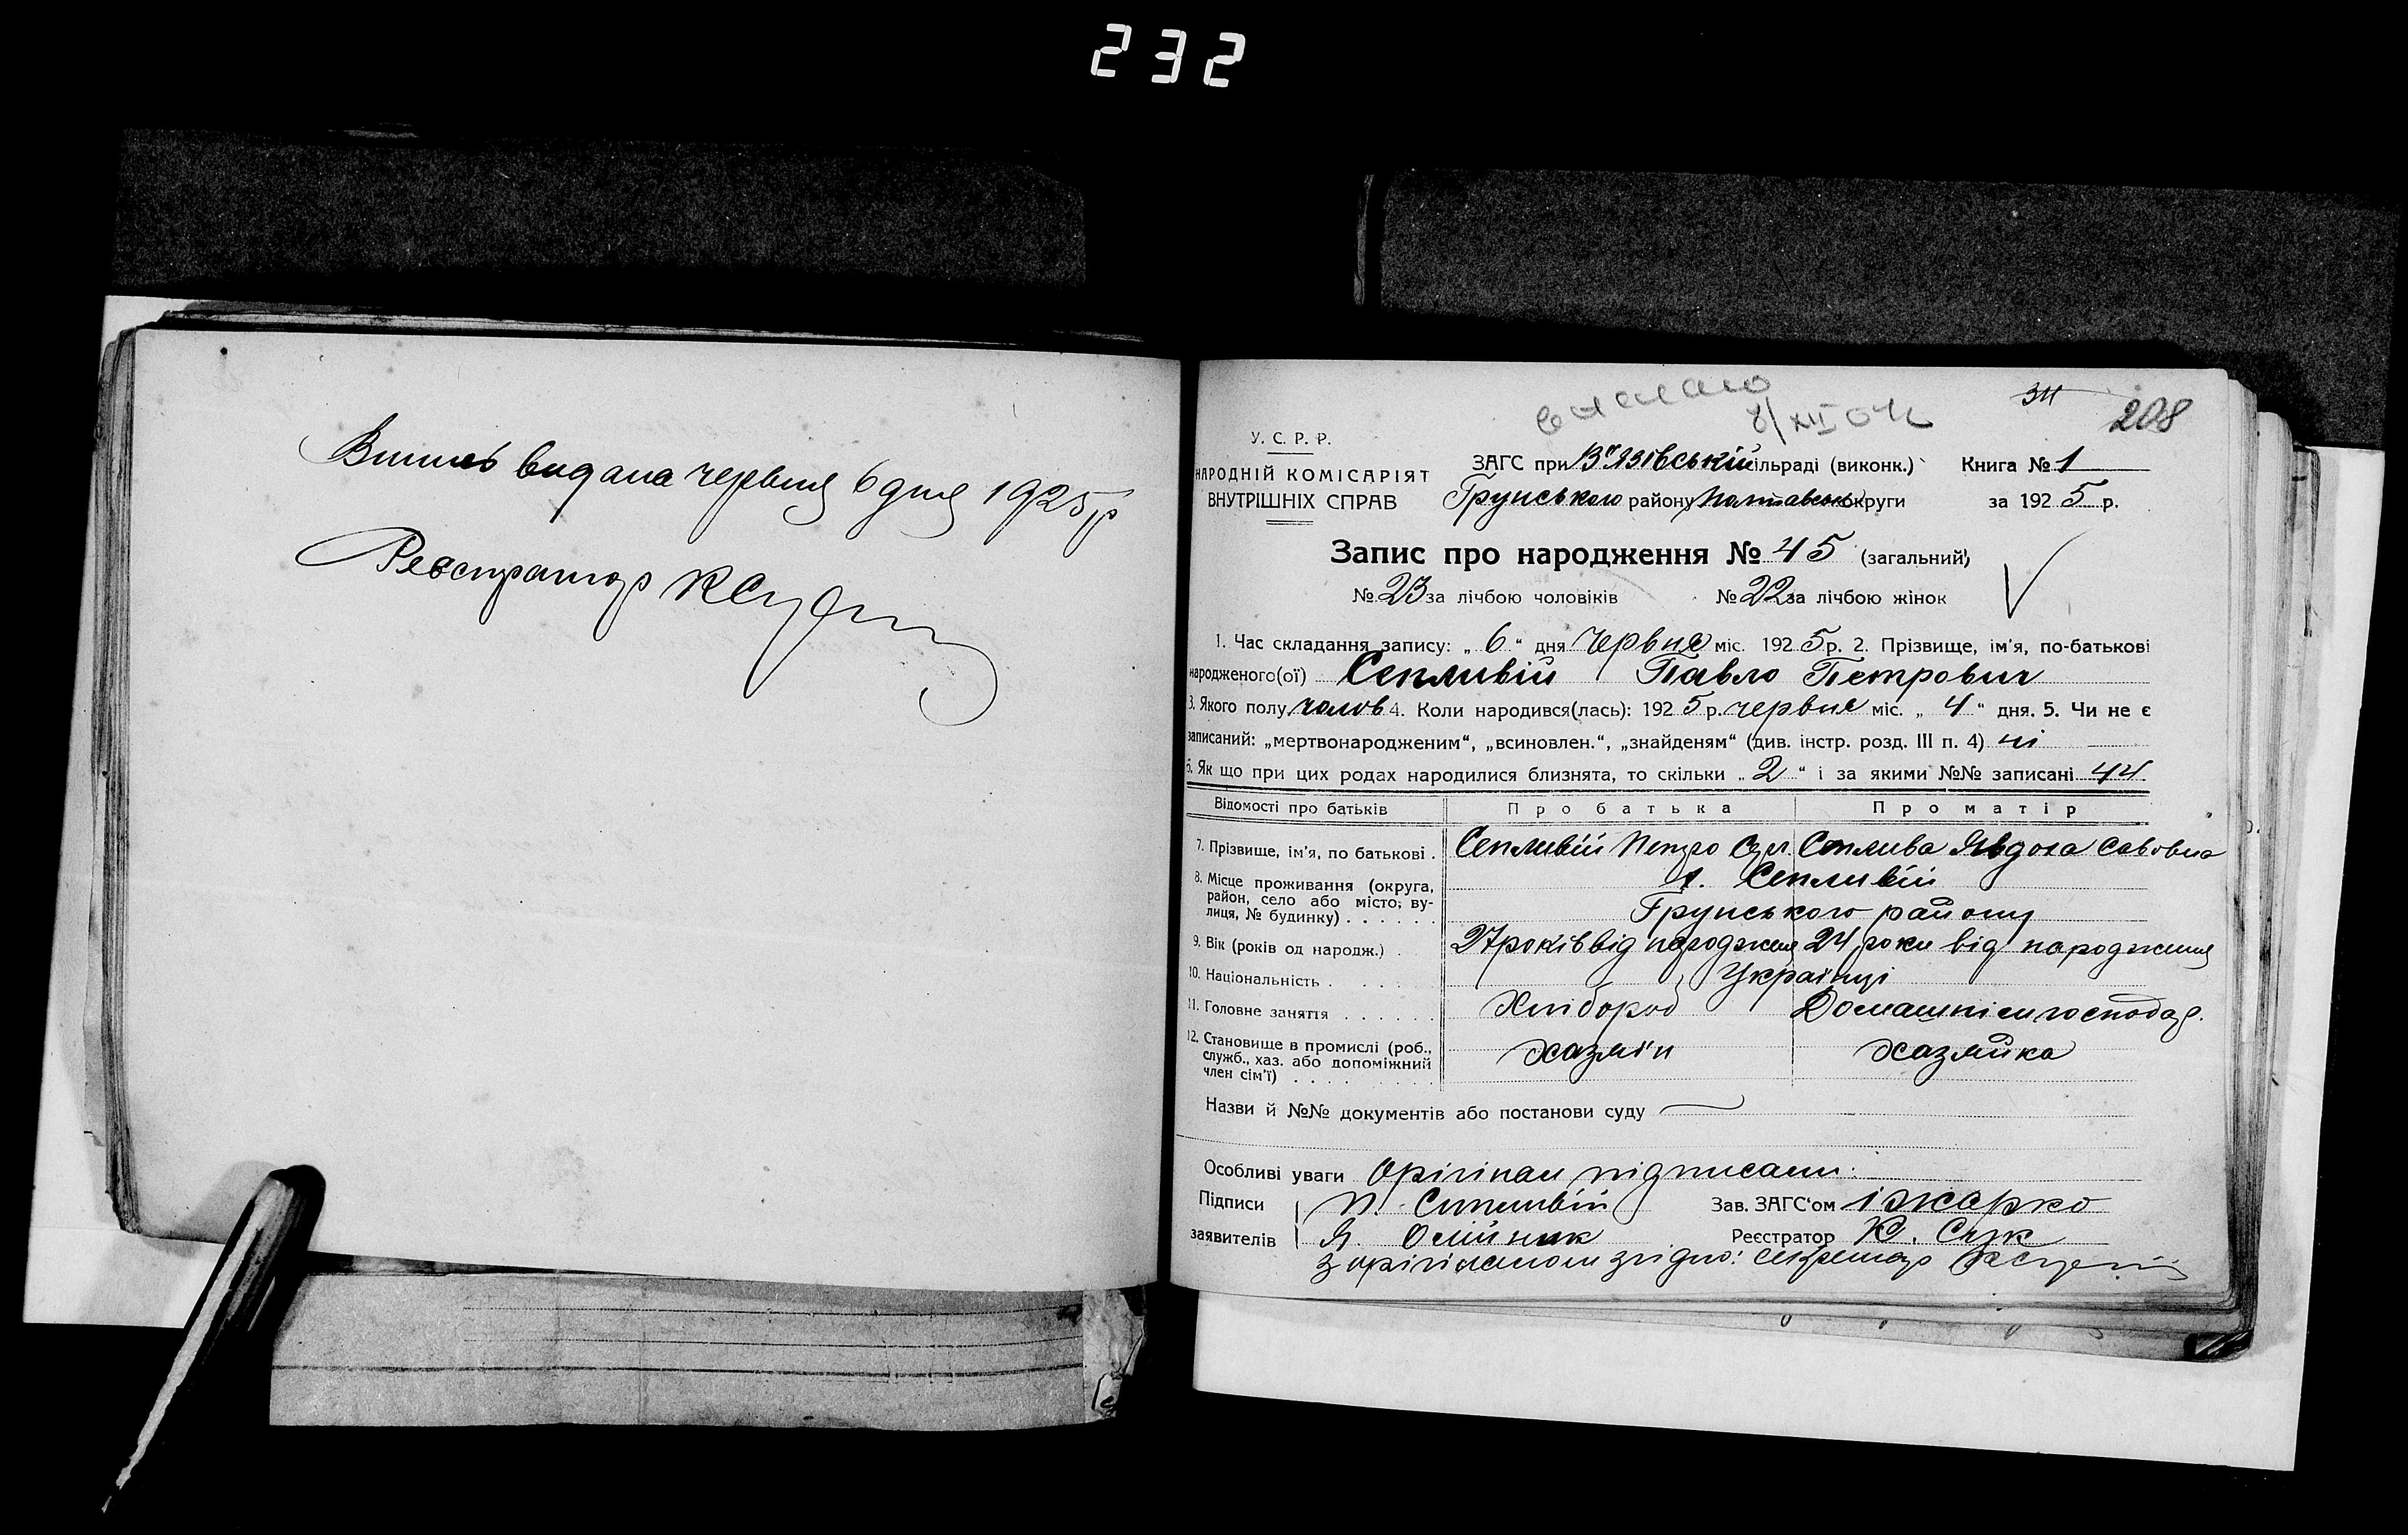 232
Випись видана червня 6 дня 1925 р
Реєстратор
34
208
8/XII
У. С. Р. Р.
НАРОДНІЙ КОМІСАРІЯТ
ВНУТРІШНІХ СПРАВ
ЗАГС при В'язівській сільраді (виконк.) Книга № 1
Грунського району Полтавськ округи за 1925 р.
Запис про народження № 45 (загальний)
№ 23 за лічбою чоловіків № 22 за лічбою жінок
1. Час складання запису: „ 6 “ дня червня міс. 1925 р. 2. Прізвище, ім'я, по-батькові
народженого(ої) Сепливій Павло Петрович
3. Якого полу чолов 4. Коли народився(лась): 1925 р. червня міс. „ 4 “ дня. 5. Чи не є
записаний: „мертвонародженим“, „всиновлен.“, „знайденям“ (див. інстр. розд. III п. 4) ні
6. Як що при цих родах народилися близнята, то скільки „ 2 “ і за якими №№ записані 44
Відомості про батьків Про батька Про матір
7. Прізвище, ім'я, по батькові . Сепливій Петро Сеплива Явдоха Савовна
8. Місце проживання (округа, район, село або місто, вулиця, № будинку) . . . . . . х. Сепливій
Грунського району
9. Вік (років од народж.) . 27 років від народження 24 роки від народження
10. Національність . . . . . Українці
11. Головне заняття . . . . . . Хлібороб Домашнім господар.
12. Становище в промислі (роб., служб., хаз. або допоміжний член сім'ї) . . . . . . хазяїн хазяйка
Назви й №№ документів або постанови суду
Особливі уваги Орігінал підписали:
Підписи П. Сипливій Зав. ЗАГС'ом І Жарко
заявителів Я. Олійник Реєстратор К.
З орігіналом згідно: секретар